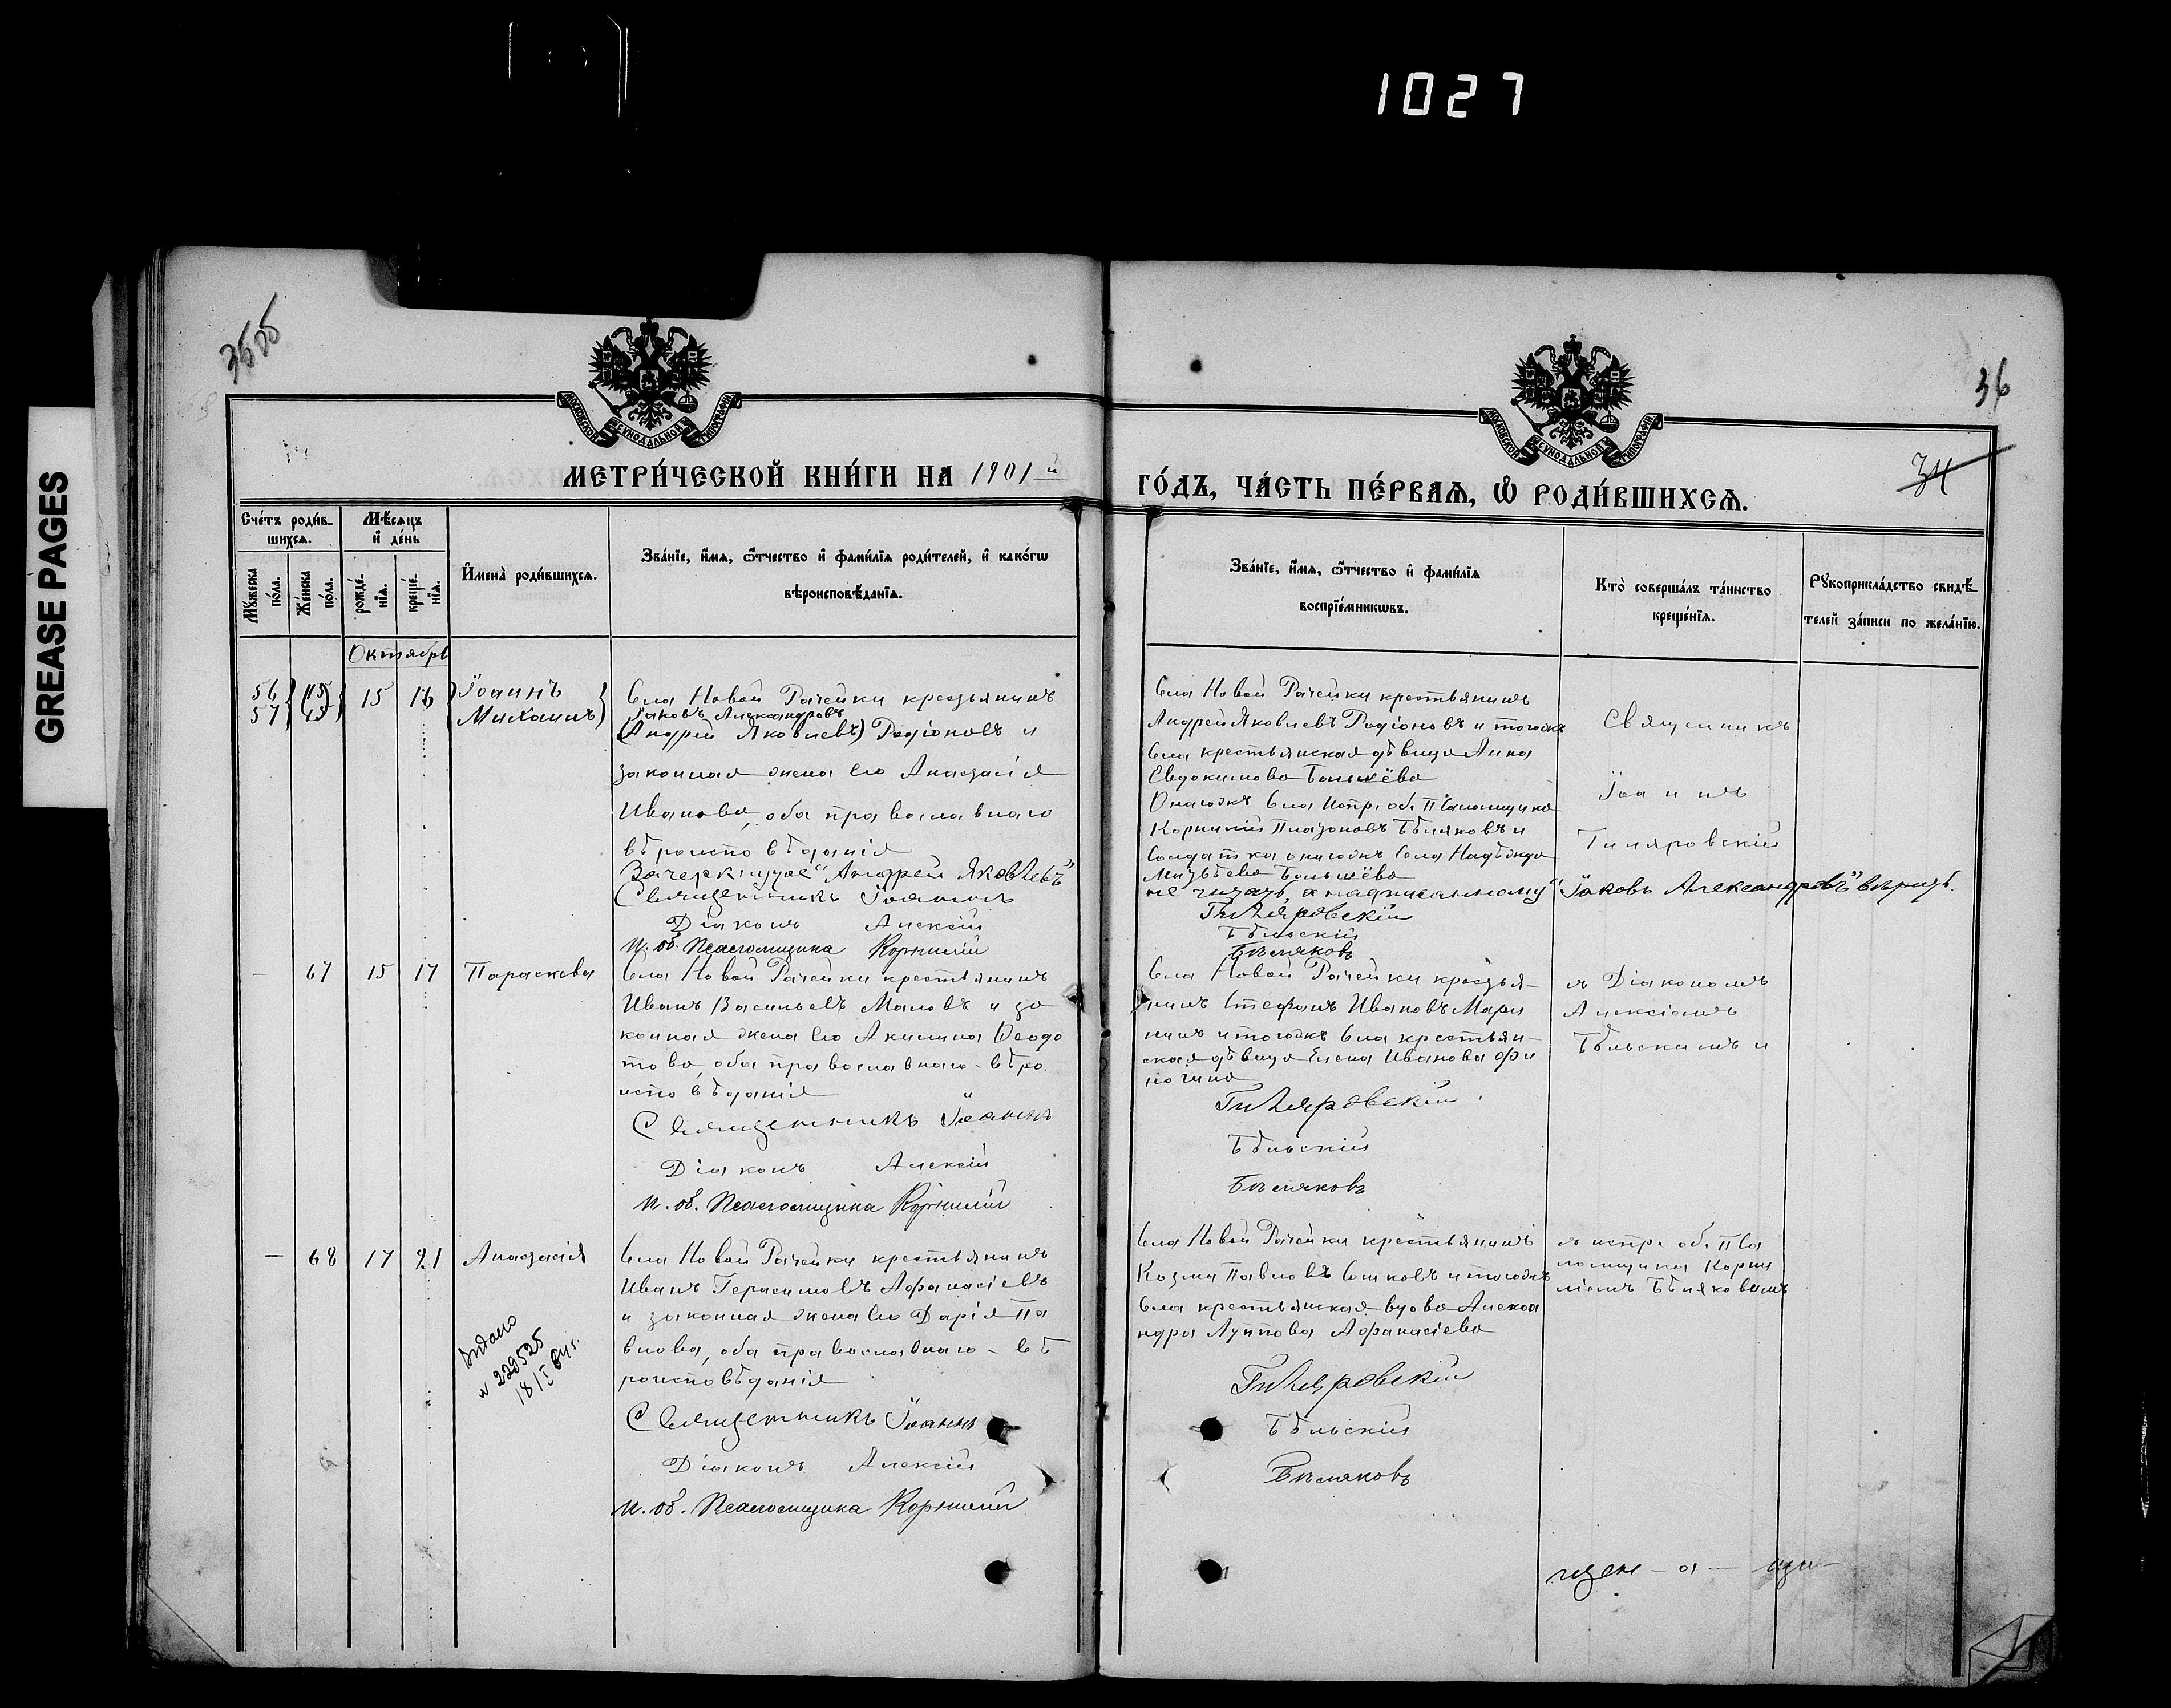 1027
GREASE PAGES
36
34
МОСКОВСКОЙ СѴНОДАЛЬНОЙ ТИПОГРАФІИ
МОСКОВСКОЙ СѴНОДАЛЬНОЙ ТИПОГРАФІИ
МЕТРИ́ЧЕСКОЙ КНИ́ГИ НА 1901 й
ГО́ДЪ, ЧА́СТЬ ПЕ́РВАѦ, Ѡ҆ РОДИ́ВШИХСѦ.
Сче́тъ роди́в-
шихсѧ.
Мꙋ́жеска по́ла.
Же́нска по́ла.
Мѣ́сѧцъ
и҆ де́нь
рожде́-
нїѧ.
креще́-
нїѧ.
И҆мена̀ роди́вшихсѧ.
Зва́нїе, и҆́мѧ, ѻ҆́тчество и҆ фами́лїѧ роди́телей, и҆ како́гѡ
вѣроисповѣ́данїѧ.
Зва́нїе, и҆́мѧ, ѻ҆́тчество и҆ фами́лїѧ
воспрїе́мникѡвъ.
Кто̀ соверша́лъ та́инство
креще́нїѧ.
Рꙋкоприкла́дство свидѣ́-
телей за́писи по жела́нїю.
Октябрь
56
57
15 16
Іоаннъ
Михаилъ
Села Новой Рачейки крестьянинъ
Іаковъ Александровъ
(Андрей Яковлевъ) Родіоновъ и
законная жена его Анастасія
Иванова, оба православнаго
вѣроисповѣданія
Зачеркнутое "Андрей Яковлевъ"
Священникъ Іоаннъ
Діаконъ Алексій
И. об. Псаломщика Корнилій
Села Новой Рачейки крестьянинъ
Андрей Яковлевъ Родіоновъ и тогожъ
села крестьянская дѣвица Анна
Евдокимова
Онагожъ села испр. об. Псаломщика
Корнилій Платоновъ Бѣляковъ и
солдатка онагожъ села Надѣжда
не читать, а надписанному "Іаковъ Александровъ" вѣрить.
Гиляровскій
Бѣльскій
Бѣляковъ
Священникъ
Іоаннъ
Гиляровскій
— 67 15 17 Параскева
Села Новой Рачейки крестьянинъ
Иванъ Васильевъ Маловъ и за
конная жена его Акилина Ѳеодо
това, оба православнаго вѣро
исповѣданія
Священникъ Іоаннъ
Діаконъ Алексій
И. об. Псаломщика Корнилій
Села Новой Рачейки крестья-
нинъ Стефанъ Ивановъ Мари
нинъ и тогожъ села крестьян-
ская дѣвица Елена Иванова Фи
Гиляровскій
Бѣльскій
Бѣляковъ
съ Діакономъ
Алексіемъ
Бѣльскимъ и
— 68 17 21 Анастасія
Села Новой Рачейки крестьянинъ
Иванъ Герасимовъ Афанасіевъ
и законная жена его Дарія Па
влова, оба православнаго вѣ
роисповѣданія
Священникъ Іоаннъ
Діаконъ Алексій
И. об. Псаломщика Корнилій
Села Новой Рачейки крестьянинъ
Козма Павловъ и тогожъ
села крестьянская вдова Алекса
ндра Луппова Афанасіева
Гиляровскій
Бѣльскій
Бѣляковъ
съ испр. об. Пса
ломщика Корни
ліемъ Бѣляковымъ